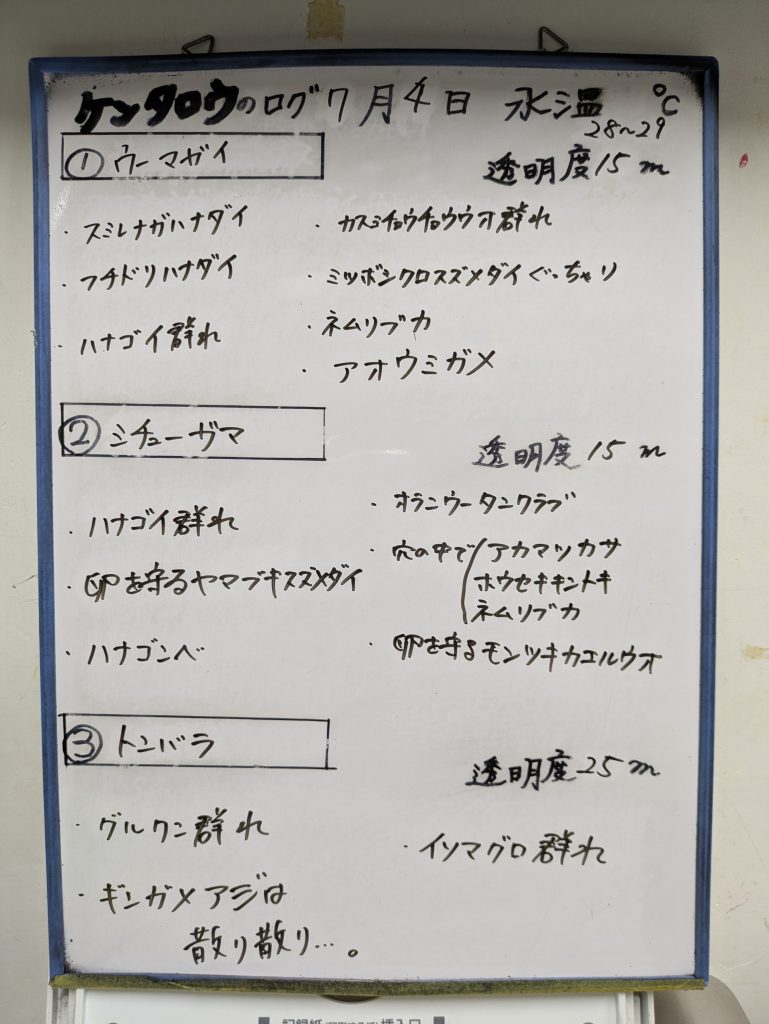 ケンタロウのログ 7月4日 水温 28~29 ℃
① ウーマガイ
透明度15m
・スミレナガハナダイ
・フチドリハナダイ
・ハナゴイ群れ
・カスミチョウチョウウオ群れ
・ミツボシクロスズメダイぐっちゃり
・ネムリブカ
・アオウミガメ
② シチューガマ
透明度15m
・ハナゴイ群れ
・卵を守るヤマブキスズメダイ
・ハナゴンベ
・オランウータンクラブ
・穴の中で アカマツカサ
ホウセキキントキ
ネムリブカ
・卵を守るモンツキカエルウオ
③ トンバラ
透明度25m
・グルクン群れ
・ギンガメアジは
散り散り…。
・イソマグロ群れ